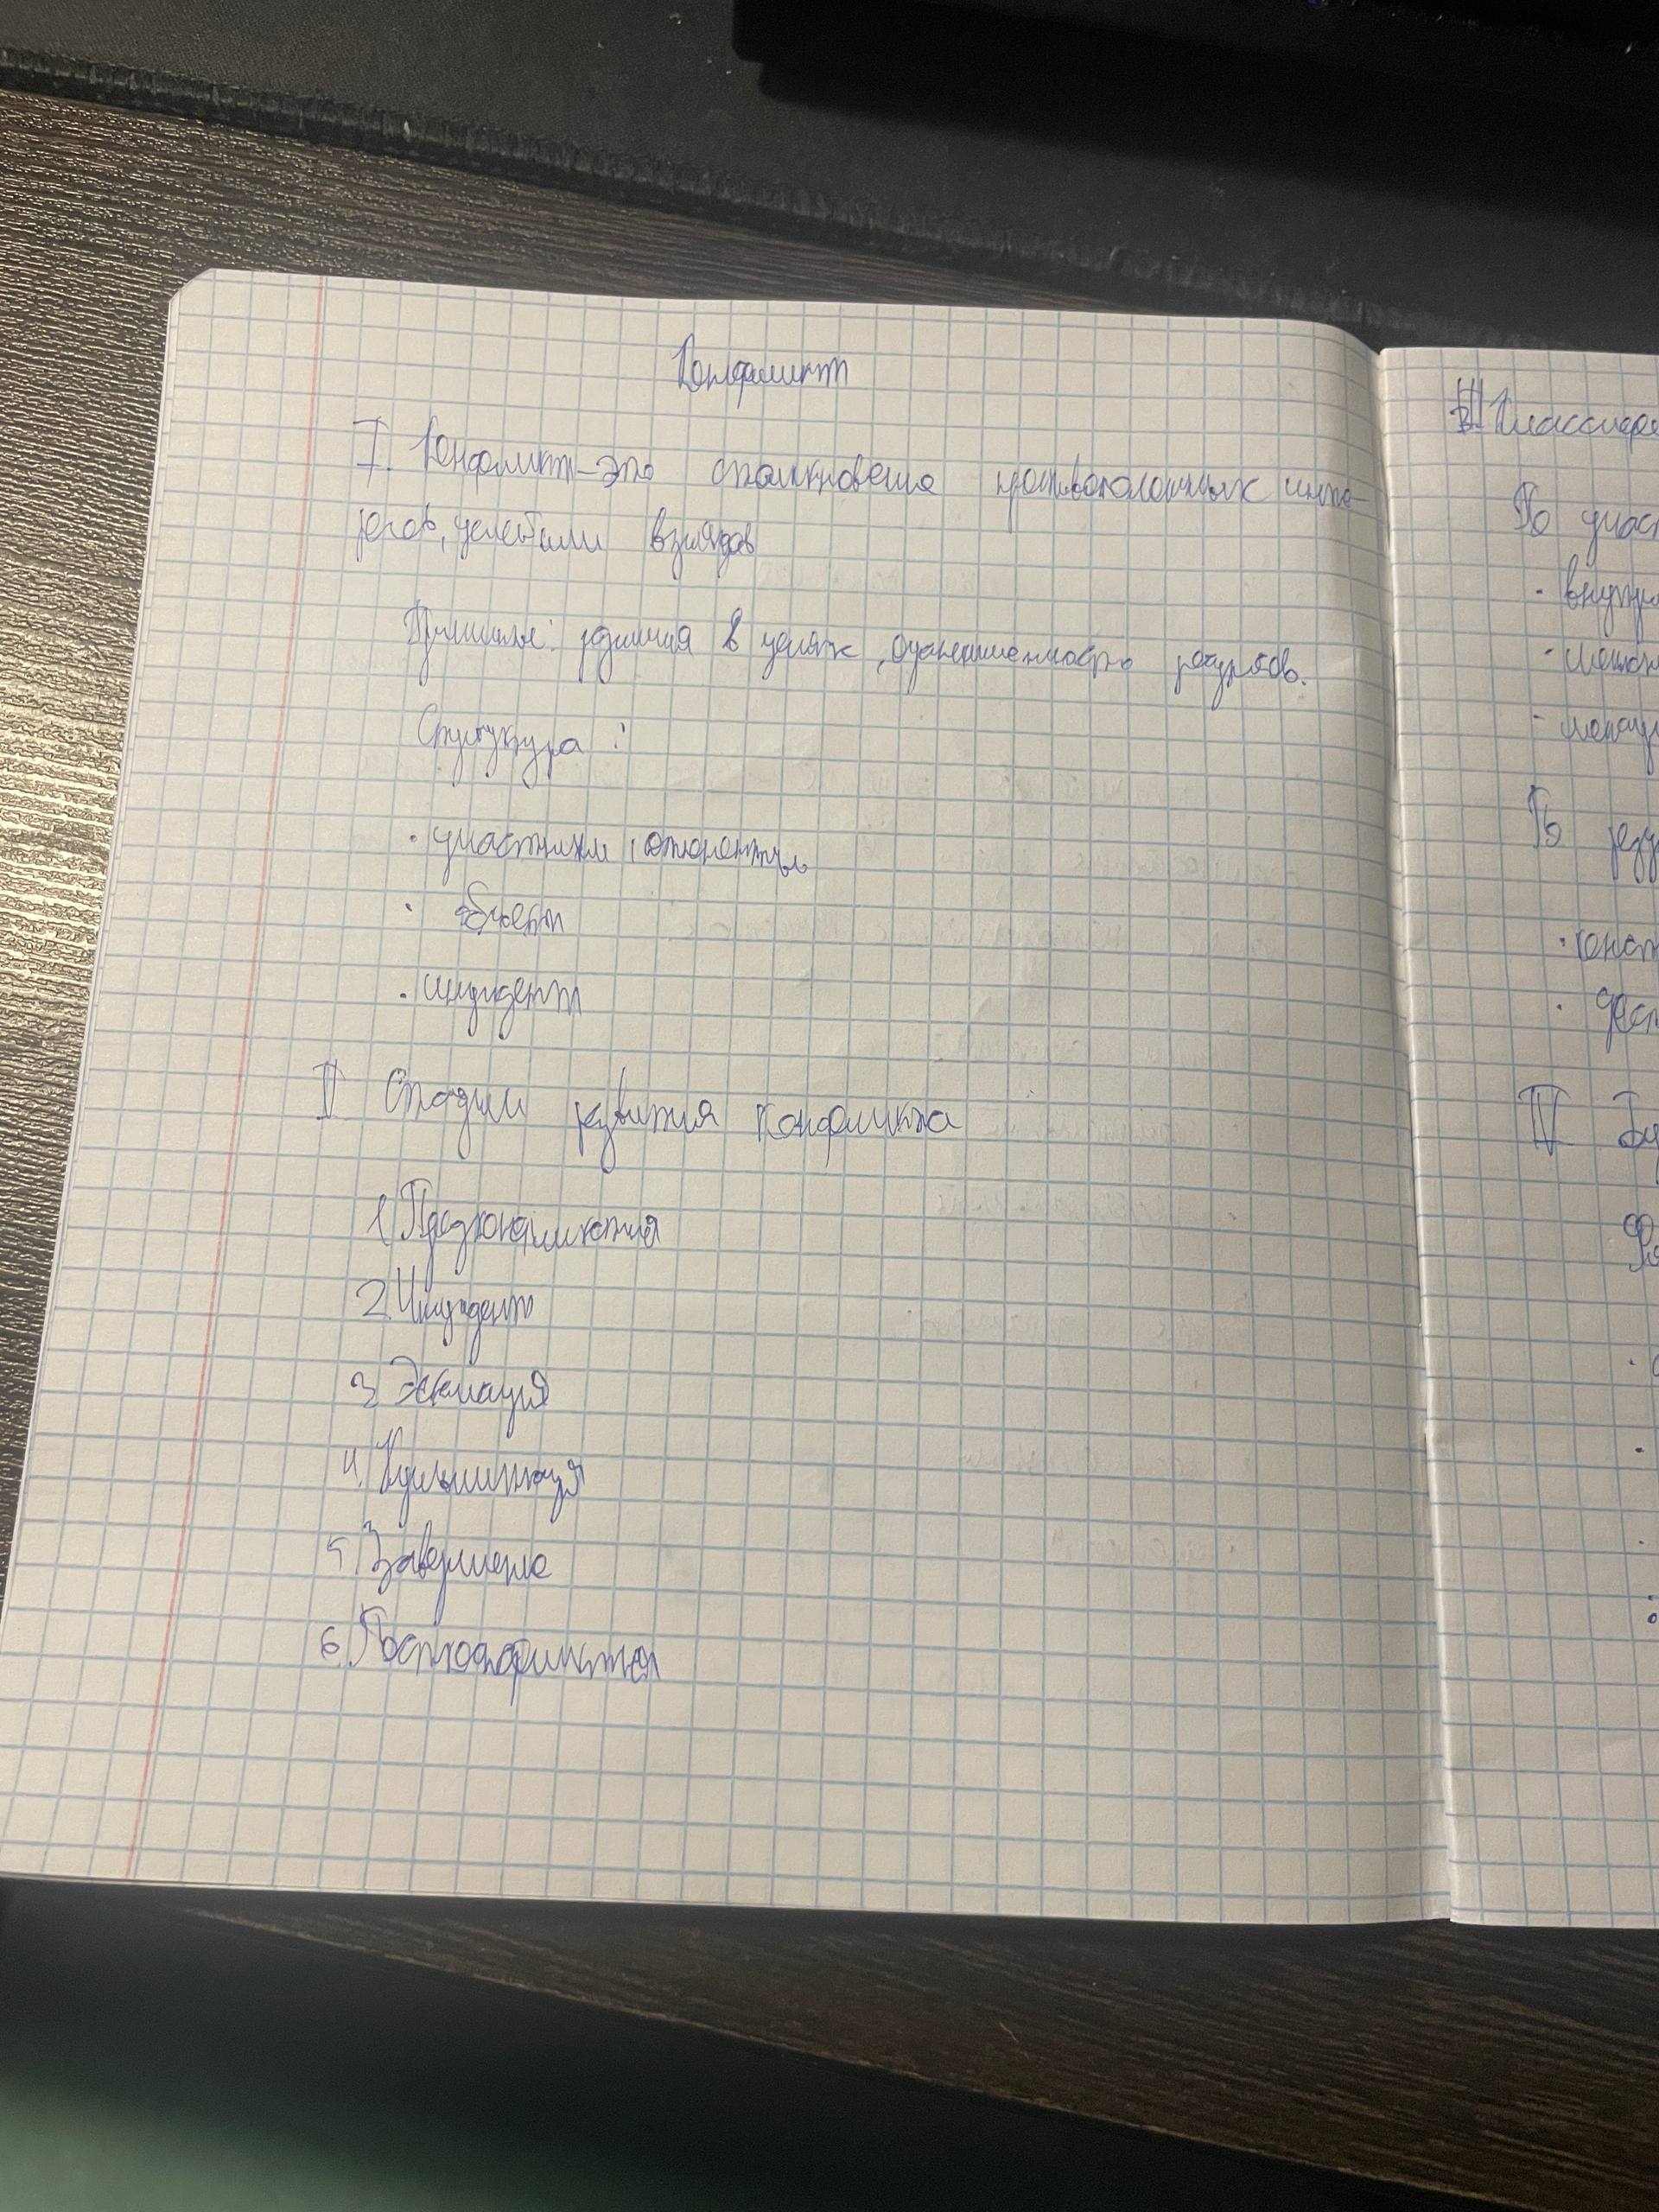 Конфликт
I. Конфликт – это столкновение противоположных инте-
ресов, целей или взглядов
Причины: различия в целях, ограниченность ресурсов.
Структура :
· участники, оппоненты
· объект
· инцидент
II Стадии развития конфликта
1 Предконфликтная
2. Инцидент
3. Эскалация
4. Кульминация
5. Завершение
6. Постконфликтная
III Классифи
По участ
· внутри
· межли
По резу
· конст
· дест
IV